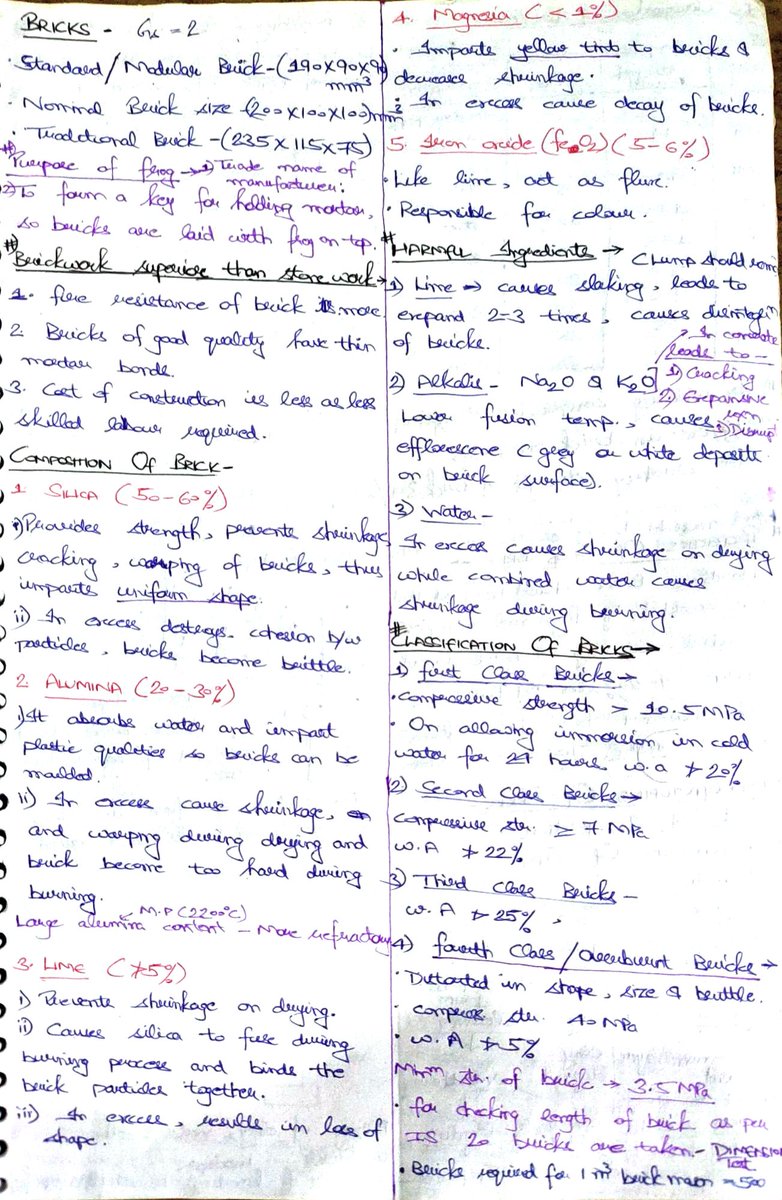 BRICKS - Gs = 2
• Standard / Modular Brick - (190×90×90) mm³
• Normal Brick size - (200×100×100) mm³
• Traditional Brick - (235×115×75)
# Purpose of frog → 1) Trade name of manufacturer.
2) To form a key for holding mortar,
so bricks are laid with frog on top.
# Brickwork superior than stone work →
1. fire resistance of brick is more.
2. Bricks of good quality have thin
mortar bonds.
3. Cost of construction is less as less
skilled labour required.
COMPOSITION OF BRICK -
1. SILICA (50-60%)
i) Provides strength, prevents shrinkage
cracking, warping of bricks, thus
imparts uniform shape.
ii) In excess destroys cohesion b/w
particles, bricks become brittle.
2. ALUMINA (20-30%)
i) It absorbs water and impart
plastic qualities so bricks can be
moulded.
ii) In excess cause shrinkage,
and warping during drying and
brick become too hard during
burning.
M.P (2200°C)
Large alumina content - More refractory
3. LIME (≯5%)
i) Prevents shrinkage on drying.
ii) Causes silica to fuse during
burning process and binds the
brick particles together.
iii) In excess, results in loss of
shape.
4. Magnesia (<1%)
• Imparts yellow tint to bricks &
decrease shrinkage.
• In excess cause decay of bricks.
5. Iron oxide (Fe O2) (5-6%)
• Like lime, act as flux.
• Responsible for colour.
# HARMFUL Ingredients → Clump should
1) Lime → causes slaking, leads to
expand 2-3 times, causes
of bricks.
In concrete
leads to -
1) Cracking
2) Expansive
2) Alkalis - Na2O & K2O
Lower fusion temp., causes
efflorescene (grey or white deposits
on brick surface).
3) Water -
In excess causes shrinkage on drying
while combined water causes
shrinkage during burning.
# CLASSIFICATION OF BRICKS →
1) First Class Bricks →
• Compressive strength > 10.5 MPa
• On allowing immersion in cold
water for 24 hours w.a ≯ 20%
2) Second Class Bricks →
Compressive str. ≥ 7 MPa
W.A ≯ 22%
3) Third Class Bricks -
W.A ≯ 25%.
4) fourth Class / Overburnt Bricks →
• Distorted in shape, size & brittle.
• compress str. 40 MPa
• W.A ≯ 5%
Minm str. of brick → 3.5 MPa
• for checking length of brick as per
IS 20 bricks are taken - DIMENSION Test
• Bricks required for 1 m³ brick mason = 500